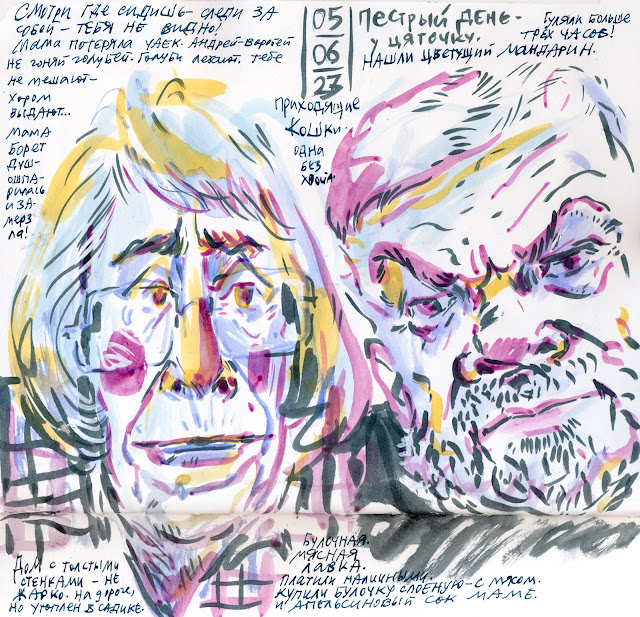 Смотри где сидишь - следи за
собой - тебя не видно!
Мама потеряла Чаек. Андрей - воротей
не гоняй голубей. Голуби лежит. тебе
не мешают -
Хором
выдают...
Мама
борет
душ -
ошпа-
рилась
и за-
мерз
ла!
05
06
23
Пестрый день -
у цяточку.
Нашли цветущий мандарин.
Гуляли больше
трёх часов!
Приходящие
Кошки.
одна
без
хвоста.
Дом с толстыми
стенками - не
жарко. На дороге,
но утоплен в садике.
Булочная.
Мясная
лавка.
Платили наличными.
Купили булочку слоёную - с мясом.
и апельсиновый сок маме.